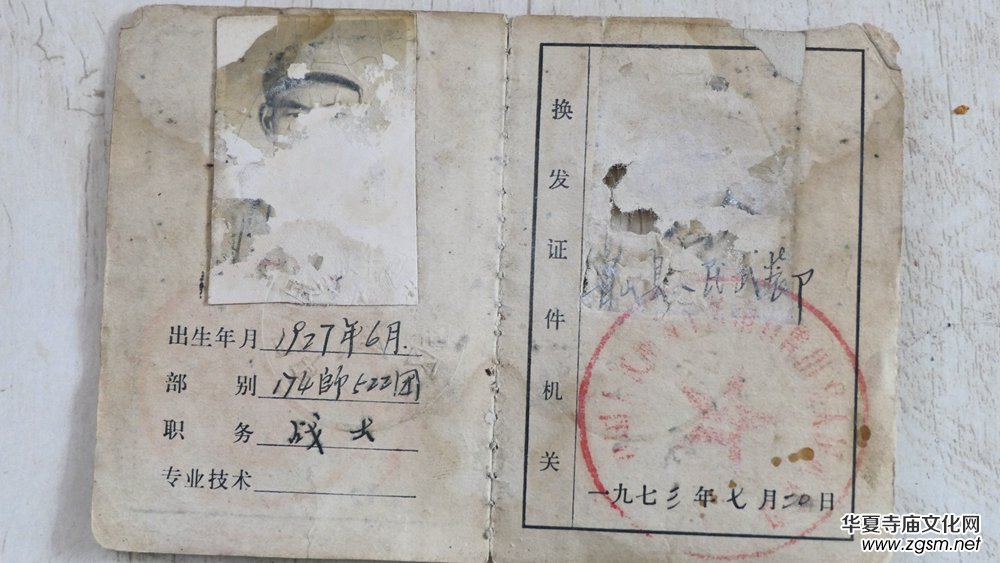 出生年月 1927年6月.
部别 174师522团
职务 战士
专业技术
换发证件机关
县人民武装部
一九七三年七月二十日
华夏寺庙文化网
www.zgsm.net